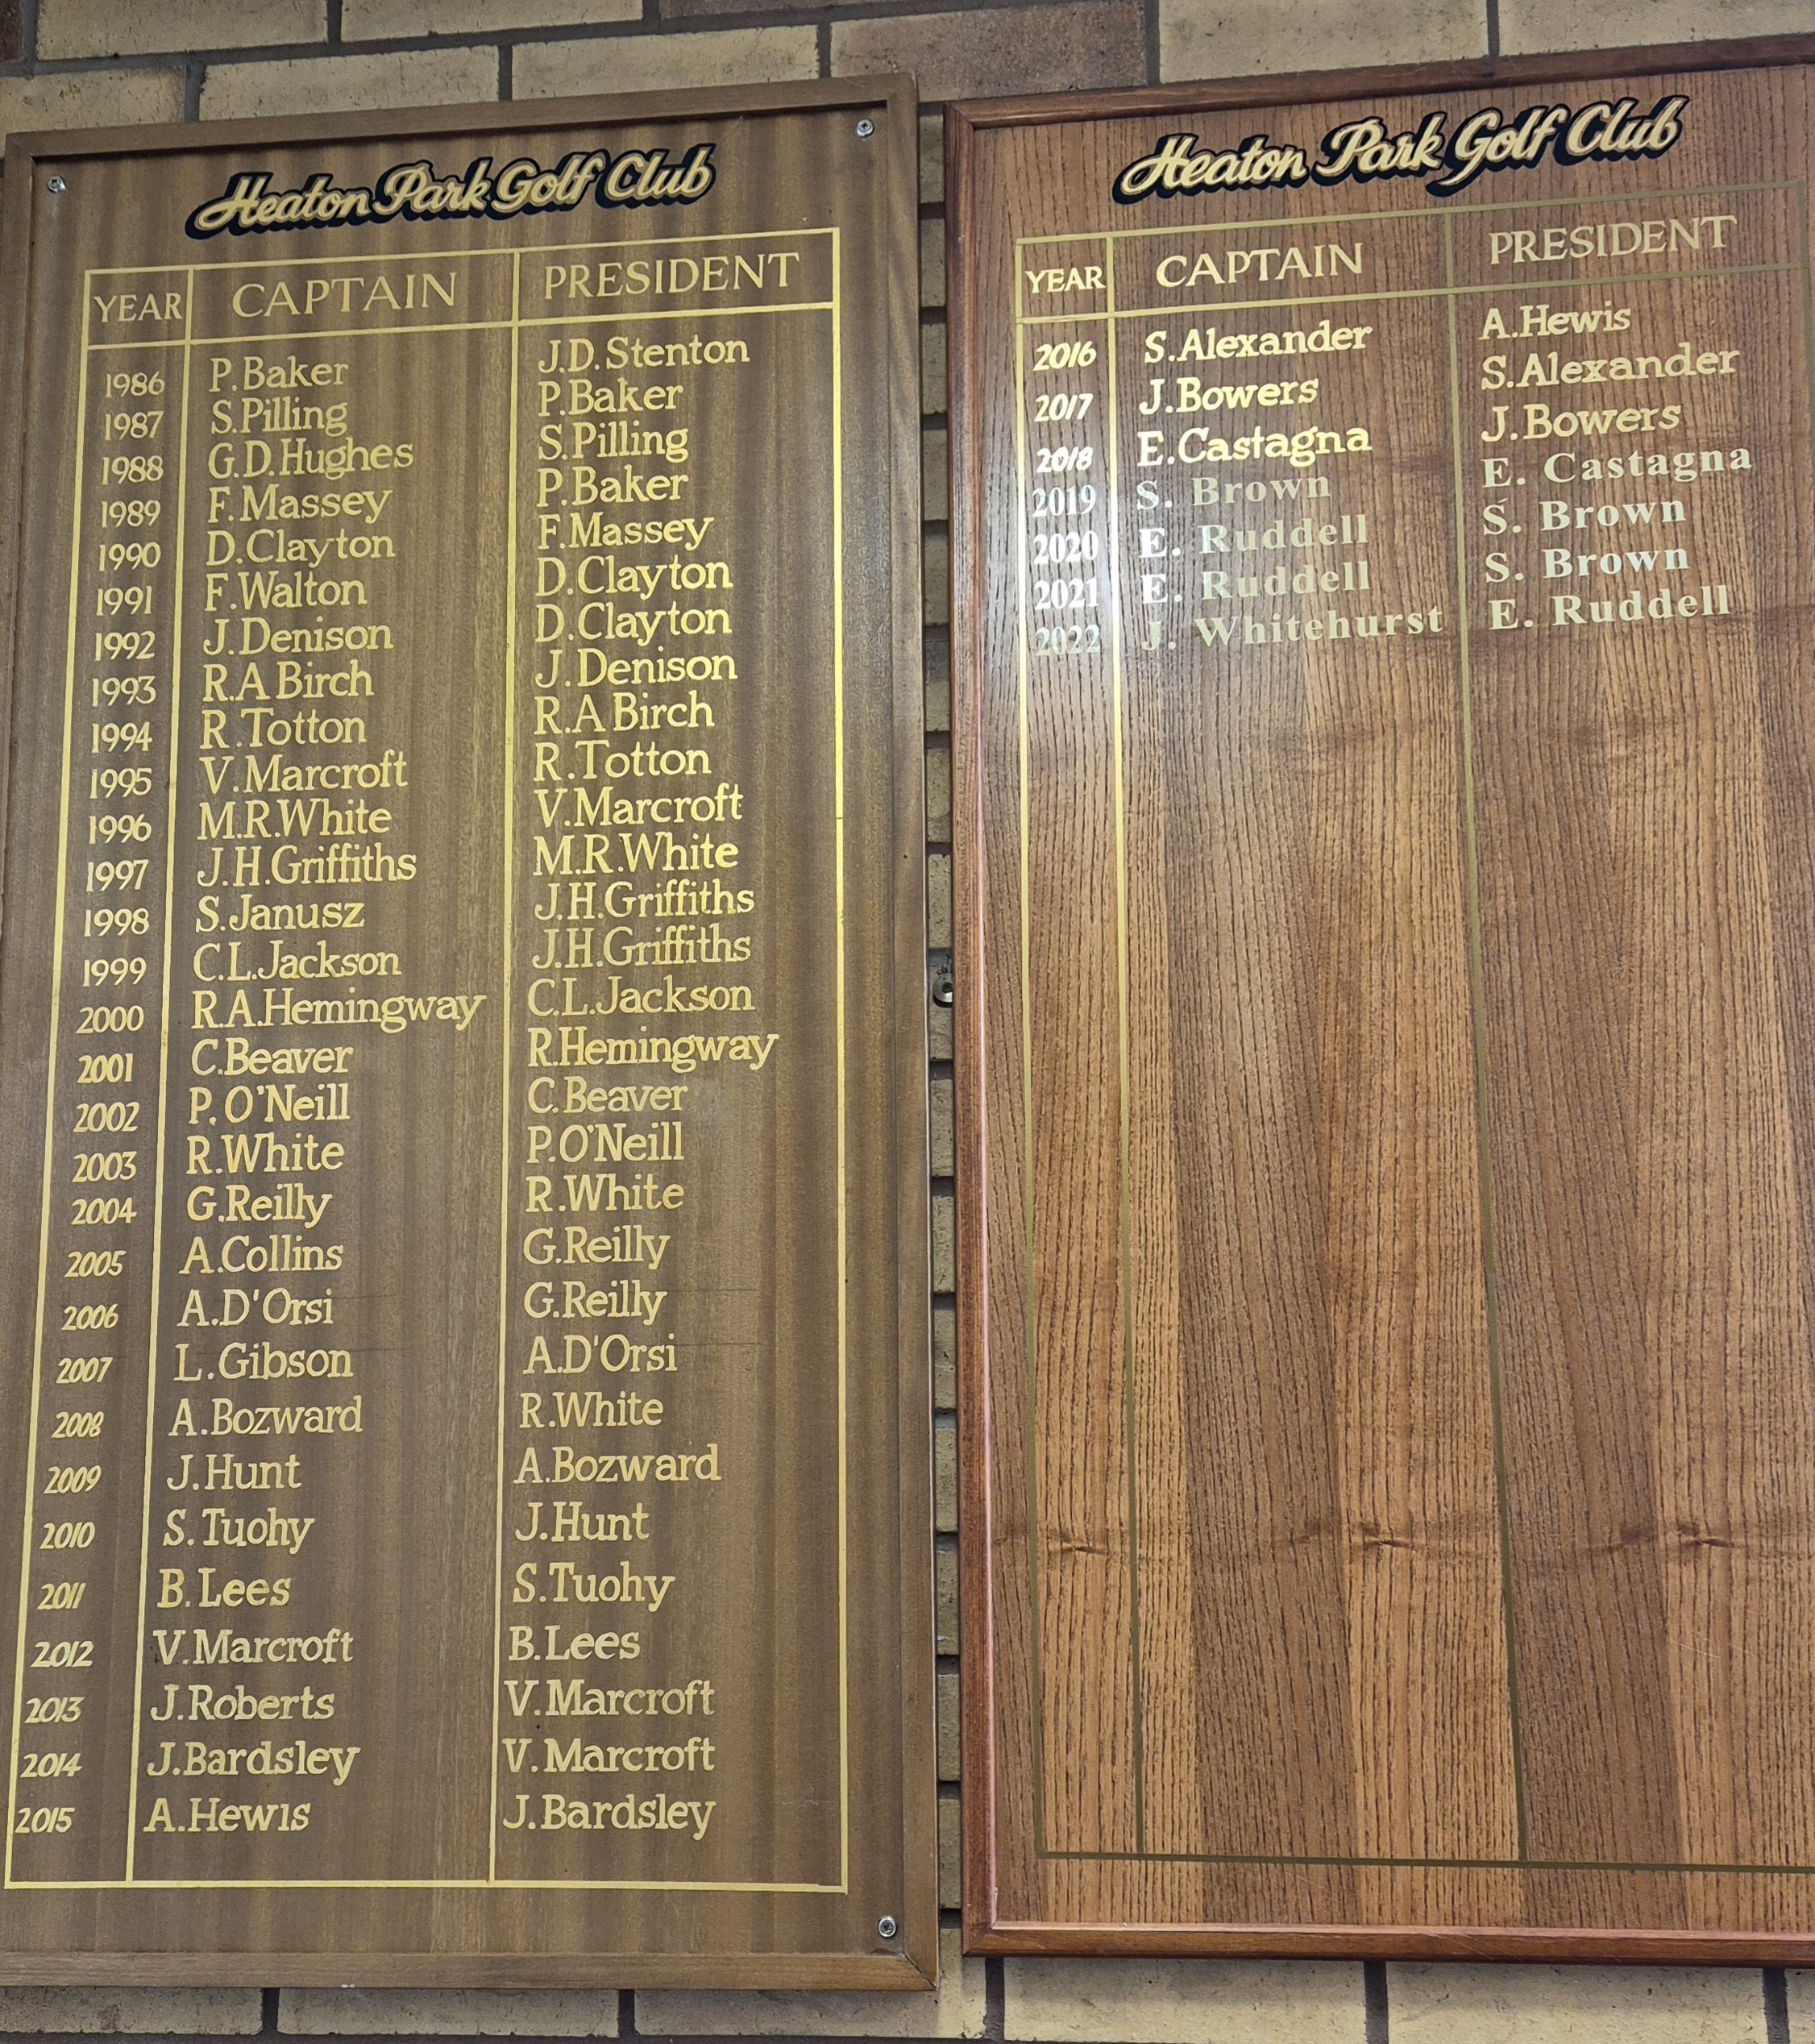 Heaton Park Golf Club
YEAR CAPTAIN PRESIDENT
1986 P.Baker J.D.Stenton
1987 S.Pilling P.Baker
1988 G.D.Hughes S.Pilling
1989 F.Massey P.Baker
1990 D.Clayton F.Massey
1991 F.Walton D.Clayton
1992 J.Denison D.Clayton
1993 R.A Birch J.Denison
1994 R.Totton R.A Birch
1995 V.Marcroft R.Totton
1996 M.R.White V.Marcroft
1997 J.H.Griffiths M.R.White
1998 S.Janusz J.H.Griffiths
1999 C.L.Jackson J.H.Griffiths
2000 R.A.Hemingway C.L.Jackson
2001 C.Beaver R.Hemingway
2002 P.O'Neill C.Beaver
2003 R.White P.O'Neill
2004 G.Reilly R.White
2005 A.Collins G.Reilly
2006 A.D'Orsi G.Reilly
2007 L.Gibson A.D'Orsi
2008 A.Bozward R.White
2009 J.Hunt A.Bozward
2010 S.Tuohy J.Hunt
2011 B.Lees S.Tuohy
2012 V.Marcroft B.Lees
2013 J.Roberts V.Marcroft
2014 J.Bardsley V.Marcroft
2015 A.Hewis J.Bardsley
Heaton Park Golf Club
YEAR CAPTAIN PRESIDENT
2016 S.Alexander A.Hewis
2017 J.Bowers S.Alexander
2018 E.Castagna J.Bowers
2019 S. Brown E. Castagna
2020 E. Ruddell S. Brown
2021 E. Ruddell S. Brown
2022 J. Whitehurst E. Ruddell